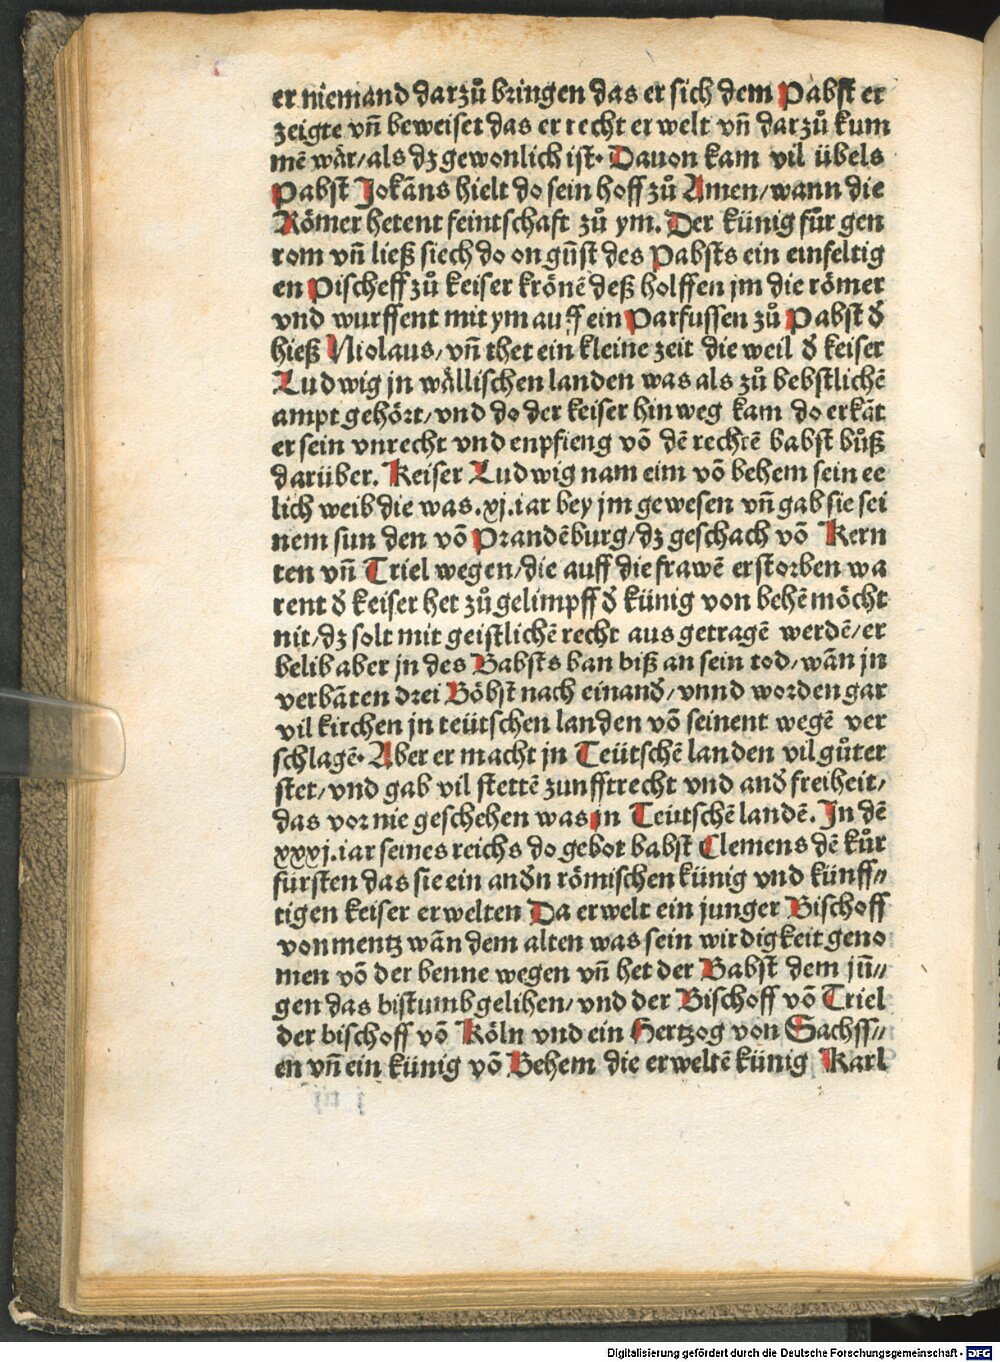 er niemand darzů bringen das er sich dem Pabst er
zeigte vn̄ beweiset das er recht erwelt vn̄ darzů kum
mē wär/als dz gewonlich ist. Dauon kam vil übels
Pabst Johāns hielt do sein hoff zů Amen/wann die
Römer hetent feintschaft zů ym. Der künig fůr gen
rom vn̄ ließ siech do on gūst des Pabsts ein einfeltig
en Pischeff zů keiser krönē deß holffen jm die römer
vnd wurffent mit ym auff ein Parfussen zů Pabst d̄
hieß Niolaus/vn̄ thet ein kleine zeit die weil d̄ keiser
Ludwig jn wällischen landen was als zů bebstlichē
ampt gehört/vnd do der keiser hin weg kam do erkāt
er sein vnrecht vnd enpfieng vō dē rechtē babst bůß
darüber. Keiser Ludwig nam eim vō behem sein ee
lich weib die was.xj.iar bey jm gewesen vn̄ gab sie sei
nem sun den vō Prandēburg/dz geschach vō Kern
ten vn̄ Triel wegen/die auff die frawē erstorben wa
rent d̄ keiser het zů gelimpff d̄ künig von behē möcht
nit/dz solt mit geistlichē recht aus getragē werdē/er
belib aber jn des Babsts ban biß an sein tod/wān jn
verbāten drei Böbst nach einand̄/vnnd worden gar
vil kirchen jn teütschen landen vō seinent wegē ver
schlagē. Aber er macht jn Teütschē landen vil gůter
stet/vnd gab vil stettē zunfftrecht vnd and̄ freiheit/
das vor nie geschehen was jn Teutschē landē. In dē
xxxj.iar seines reichs do gebot babst Clemens dē kůr
fürsten das sie ein and̄n römischen künig vnd künff//
tigen keiser erwelten Da erwelt ein junger Bischoff
von mentz wān dem alten was sein wirdigkeit geno
men vō der benne wegen vn̄ het der Babst dem jū//
gen das bistumb gelihen/vnd der Bischoff vō Triel
der bischoff vō Köln vnd ein Hertzog von Sachss//
en vn̄ ein künig vō Behem die erweltē künig Karl
Digitalisierung gefördert durch die Deutsche Forschungsgemeinschaft - DFG